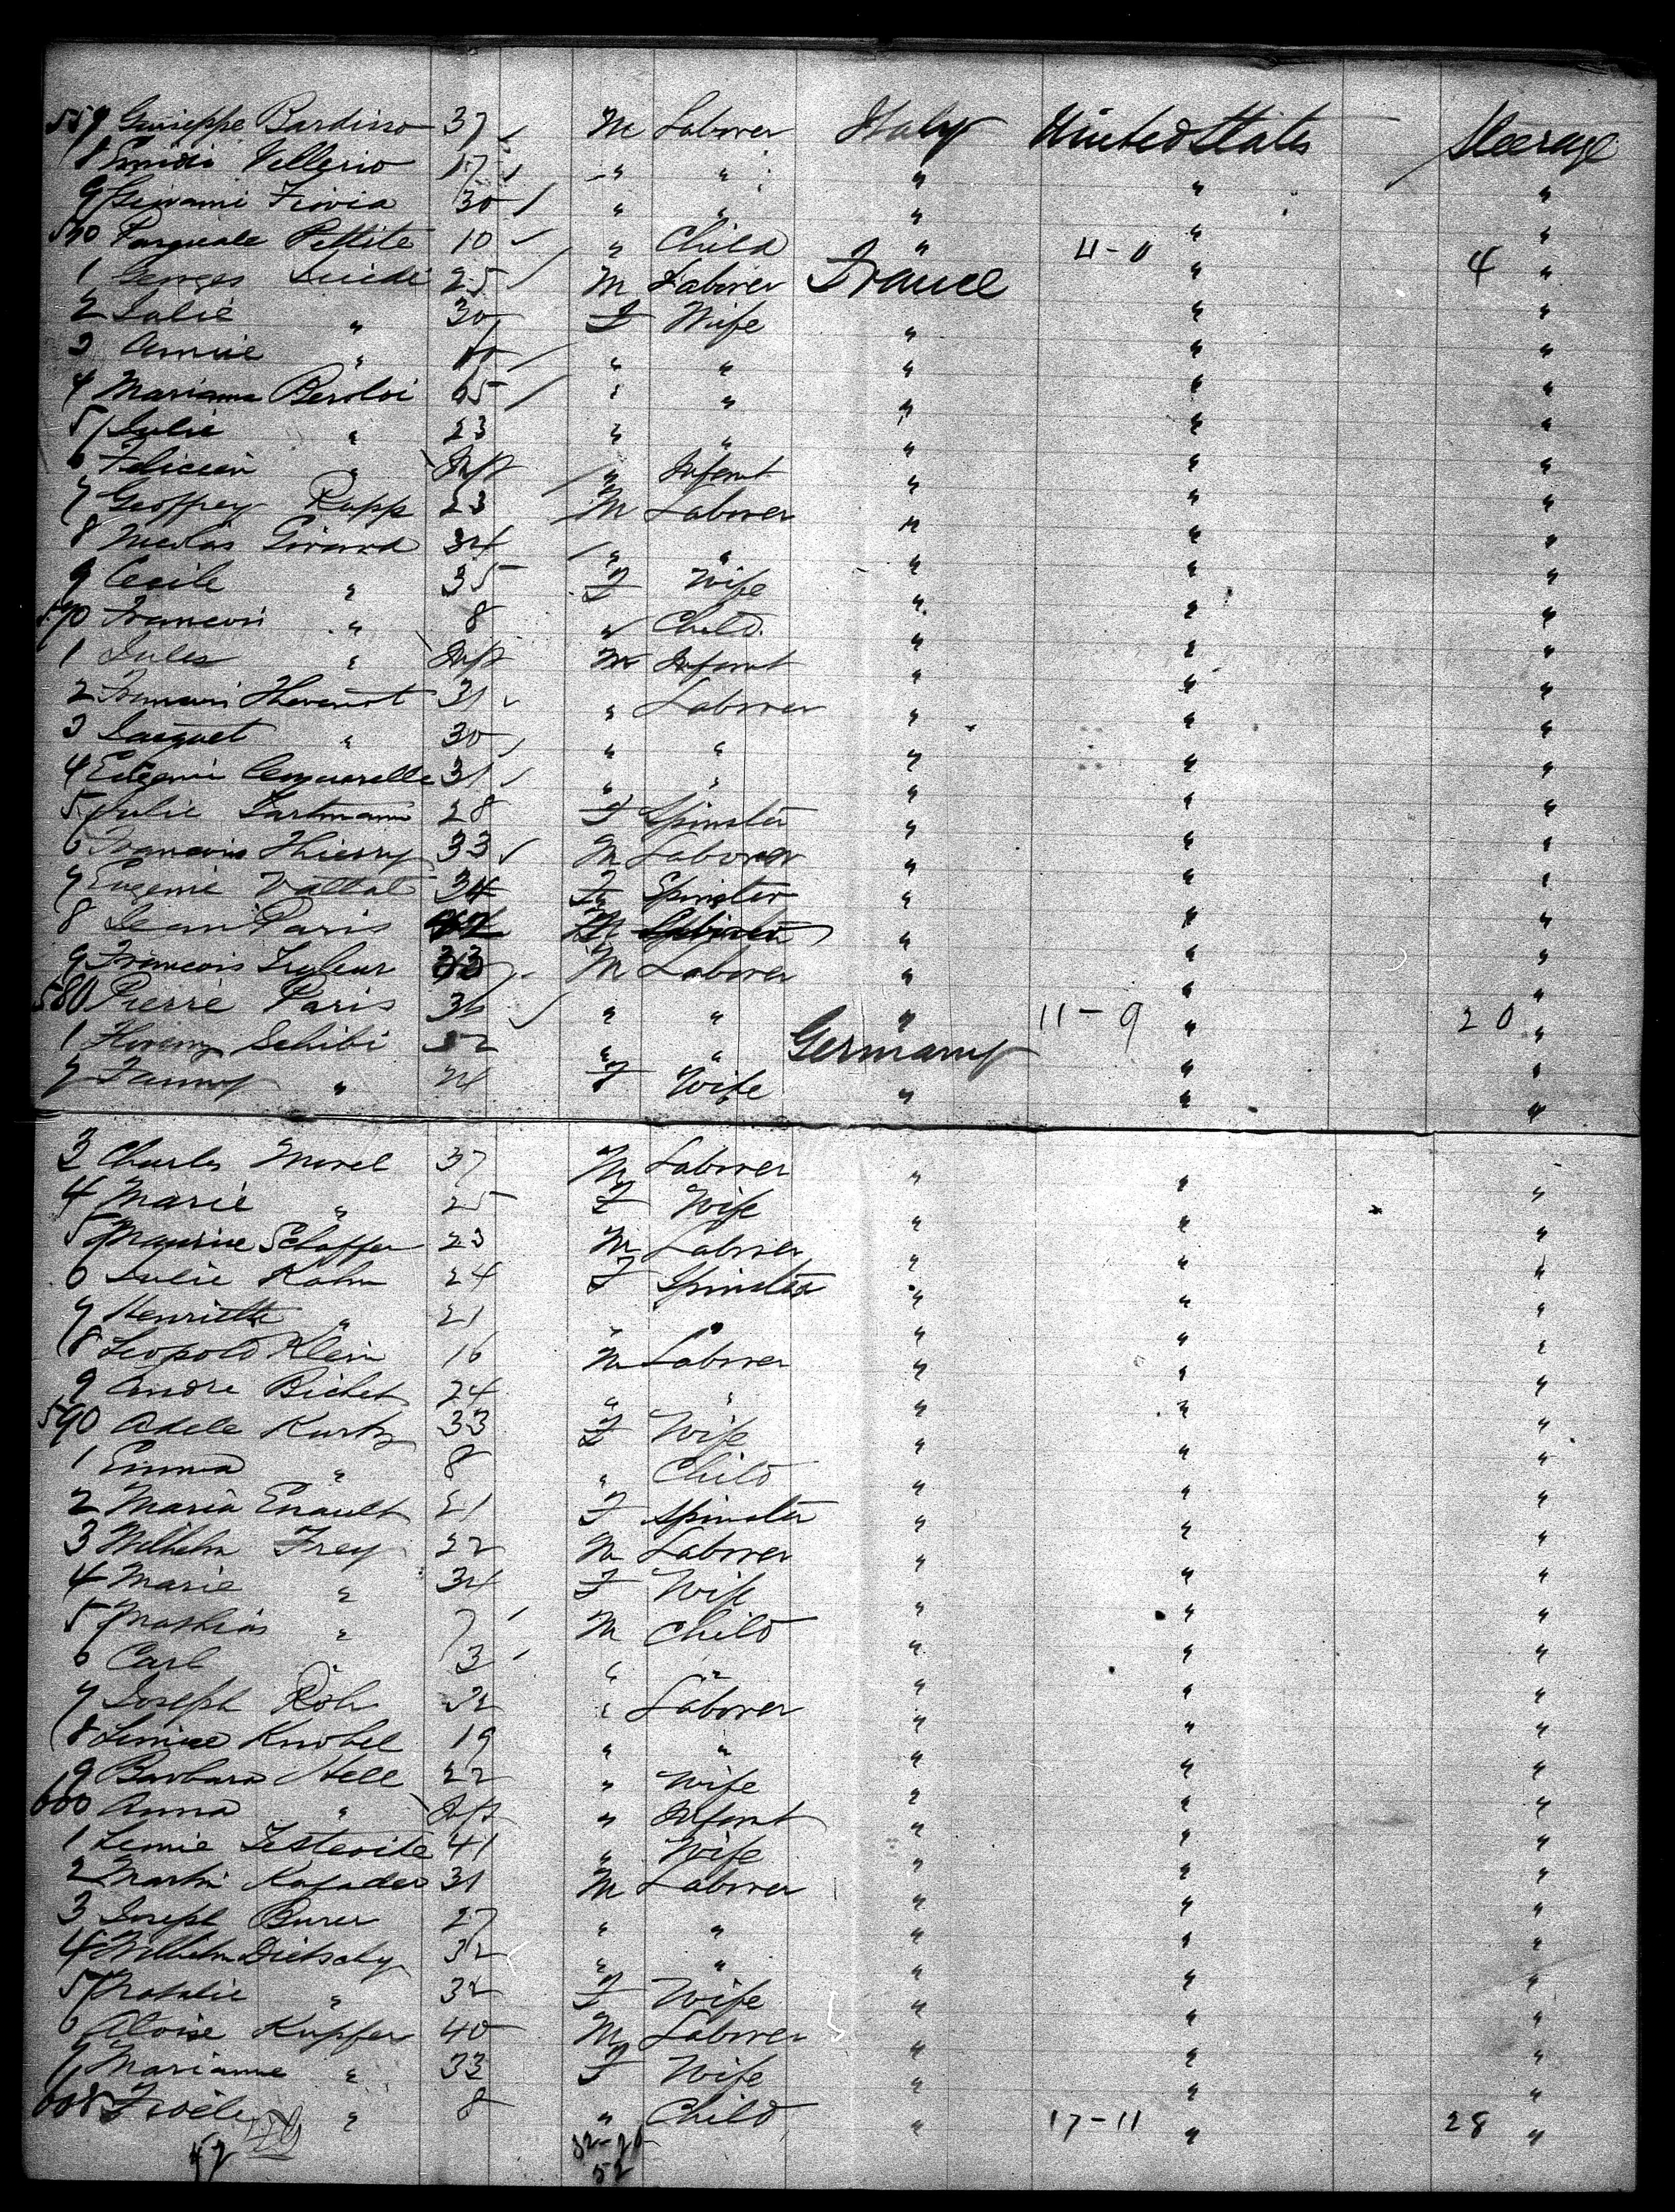 557 Guiseppe Bardino 37 M Laborer Italy United States Steerage
8 Emidio Vellerio 17 " " " " "
9 Giovanni 30 " " " " "
560 Pasquale Pettite 10 " Child " 4-0 " 4 "
1 Georges 25 M Laborer France " "
2 Julie " 30 F Wife " " "
3 Annie " " " " " "
4 Marianna 65 " " " " "
5 Julie " 23 " " " " "
6 Felicien " Inft " Infant " " "
7 Geoffrey Rupp 23 M Laborer " " "
8 Nicolas Girard 34 " " " " "
9 Cecile " 35 F Wife " " "
570 Francois " 8 " Child " " "
1 Jules " Inft M Infant " " "
2 Francois 31 " Laborer " " "
3 Jacquet " 30 " " " " "
4 31 " " " " "
5 Julie Lartmann 28 F Spinster " " "
6 Francois Thierry 33 M Laborer " " "
7 Eugenie Vattat 34 F Spinster " " "
8 Jean Paris M " " "
9 Francois 33 M Laborer " " "
580 Pierre Paris 36 " " " 11-9 " 20 "
1 Schibi 52 " " Germany " "
2 Fanny " 24 F Wife " " "
3 Charles Morel 37 M Laborer " " "
4 Marie " 25 F Wife " " "
5 Maurice Schaffer 23 M Laborer " " "
6 Julie Kahn 24 F Spinster " " "
7 Henriette " 21 " " " " "
8 Leopold Klein 16 M Laborer " " "
9 Andre Bichet 24 " " " " "
590 Adele Kurtz 33 F Wife " " "
1 Emma " 8 " Child " " "
2 Maria Enault 21 F Spinster " " "
3 Wilhelm Frey 22 M Laborer " " "
4 Marie " 34 F Wife " " "
5 Mathias " 7 M Child " " "
6 Carl " 3 " " " " "
7 Joseph Röh 32 " Laborer " " "
8 Knobel 19 " " " " "
9 Barbara Hell 22 " Wife " " "
600 Anna " Inft " Infant " " "
1 41 " Wife " " "
2 Martin 31 M Laborer " " "
3 Joseph Burer 27 " " " " "
4 Wilhelm Dietschy 32 " " " " "
5 Natalie " 32 F Wife " " "
6 Aloise Kupfer 40 M Laborer " " "
7 Marianne " 33 F Wife " " "
608 " 8 " Child " 17-11 " 28 "
32-20
52
52